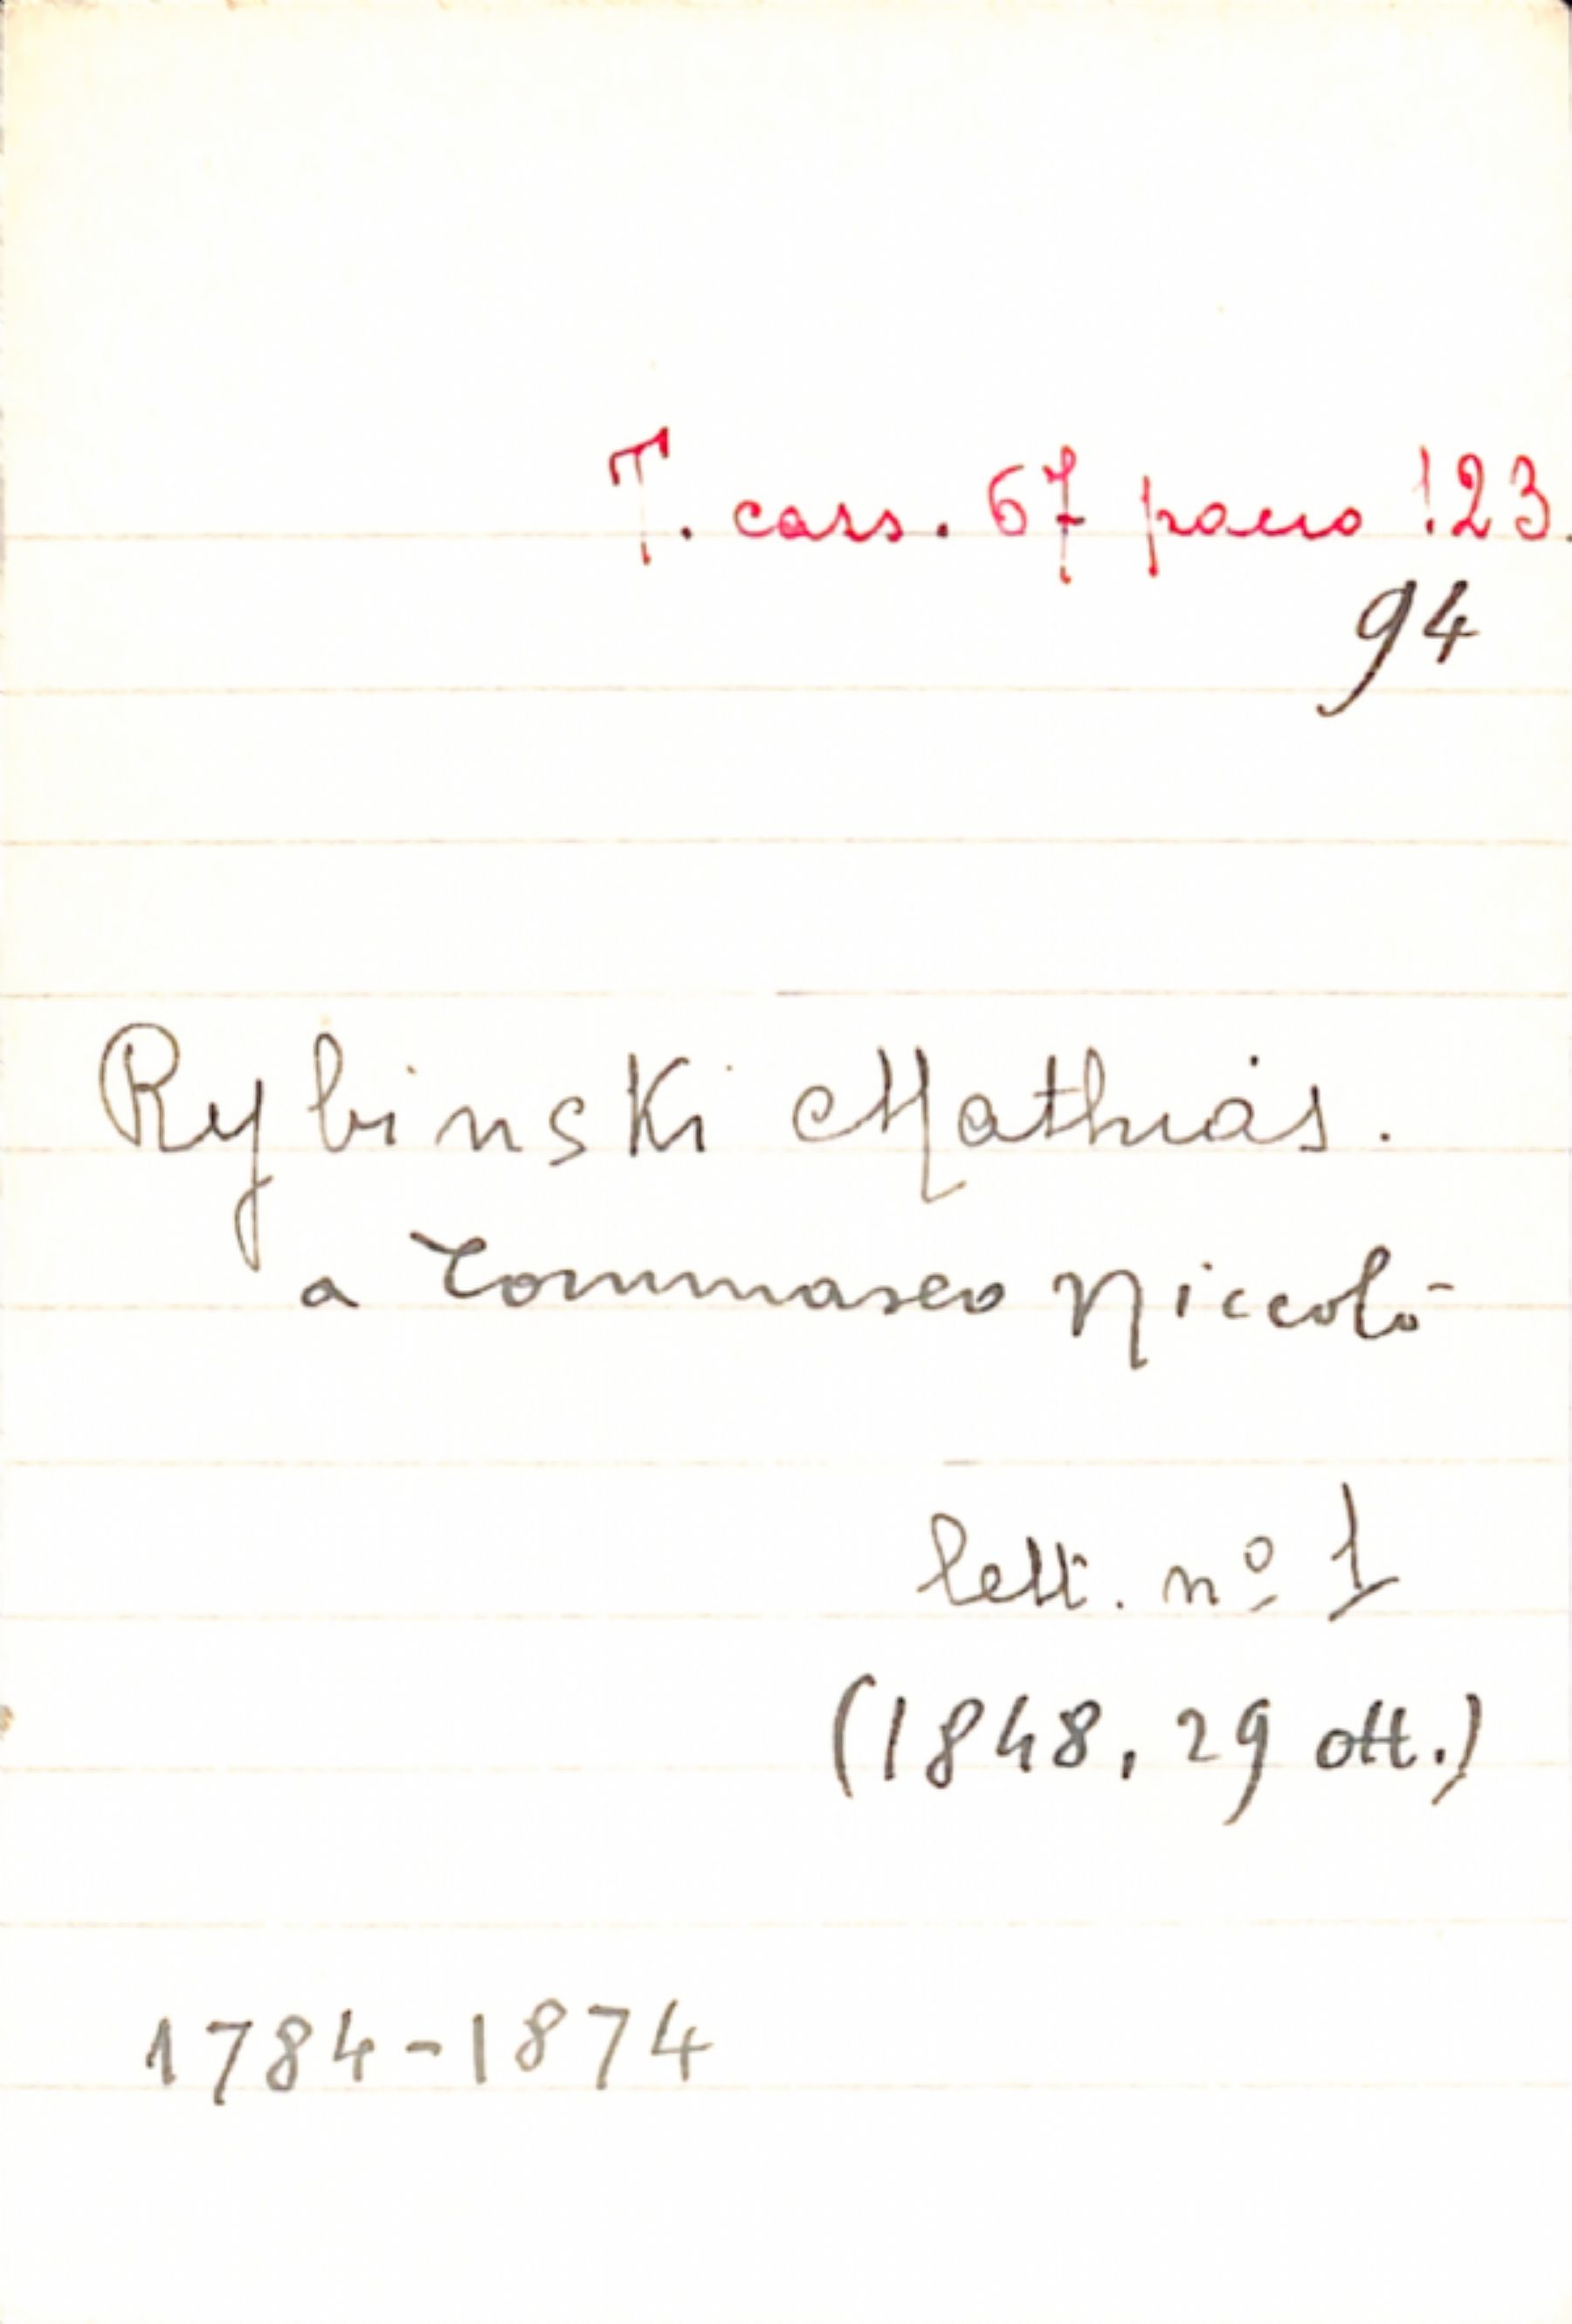 T. cass. 67 pacco 123.
94
Rybinski Mathias.
a Tommaseo Niccolò
lett. nº 1
(1848, 29 ott.)
1784-1874